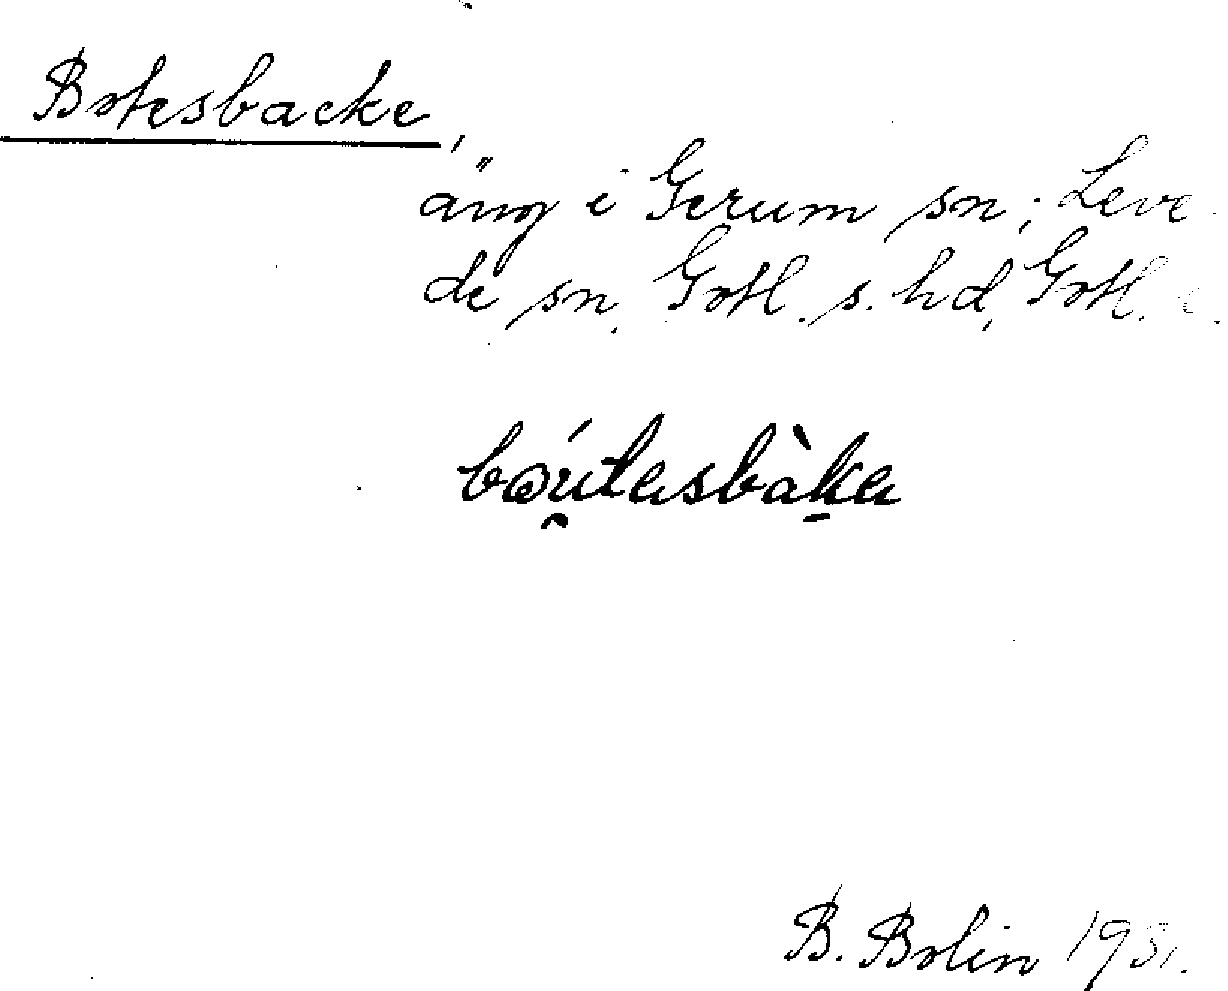 Botesbacke,
äng i Gerum sn; Leve-
de sn, Gotl. s. hd, Gotl. l.
bǫu̯tasbàka
B. Bolin 1931.